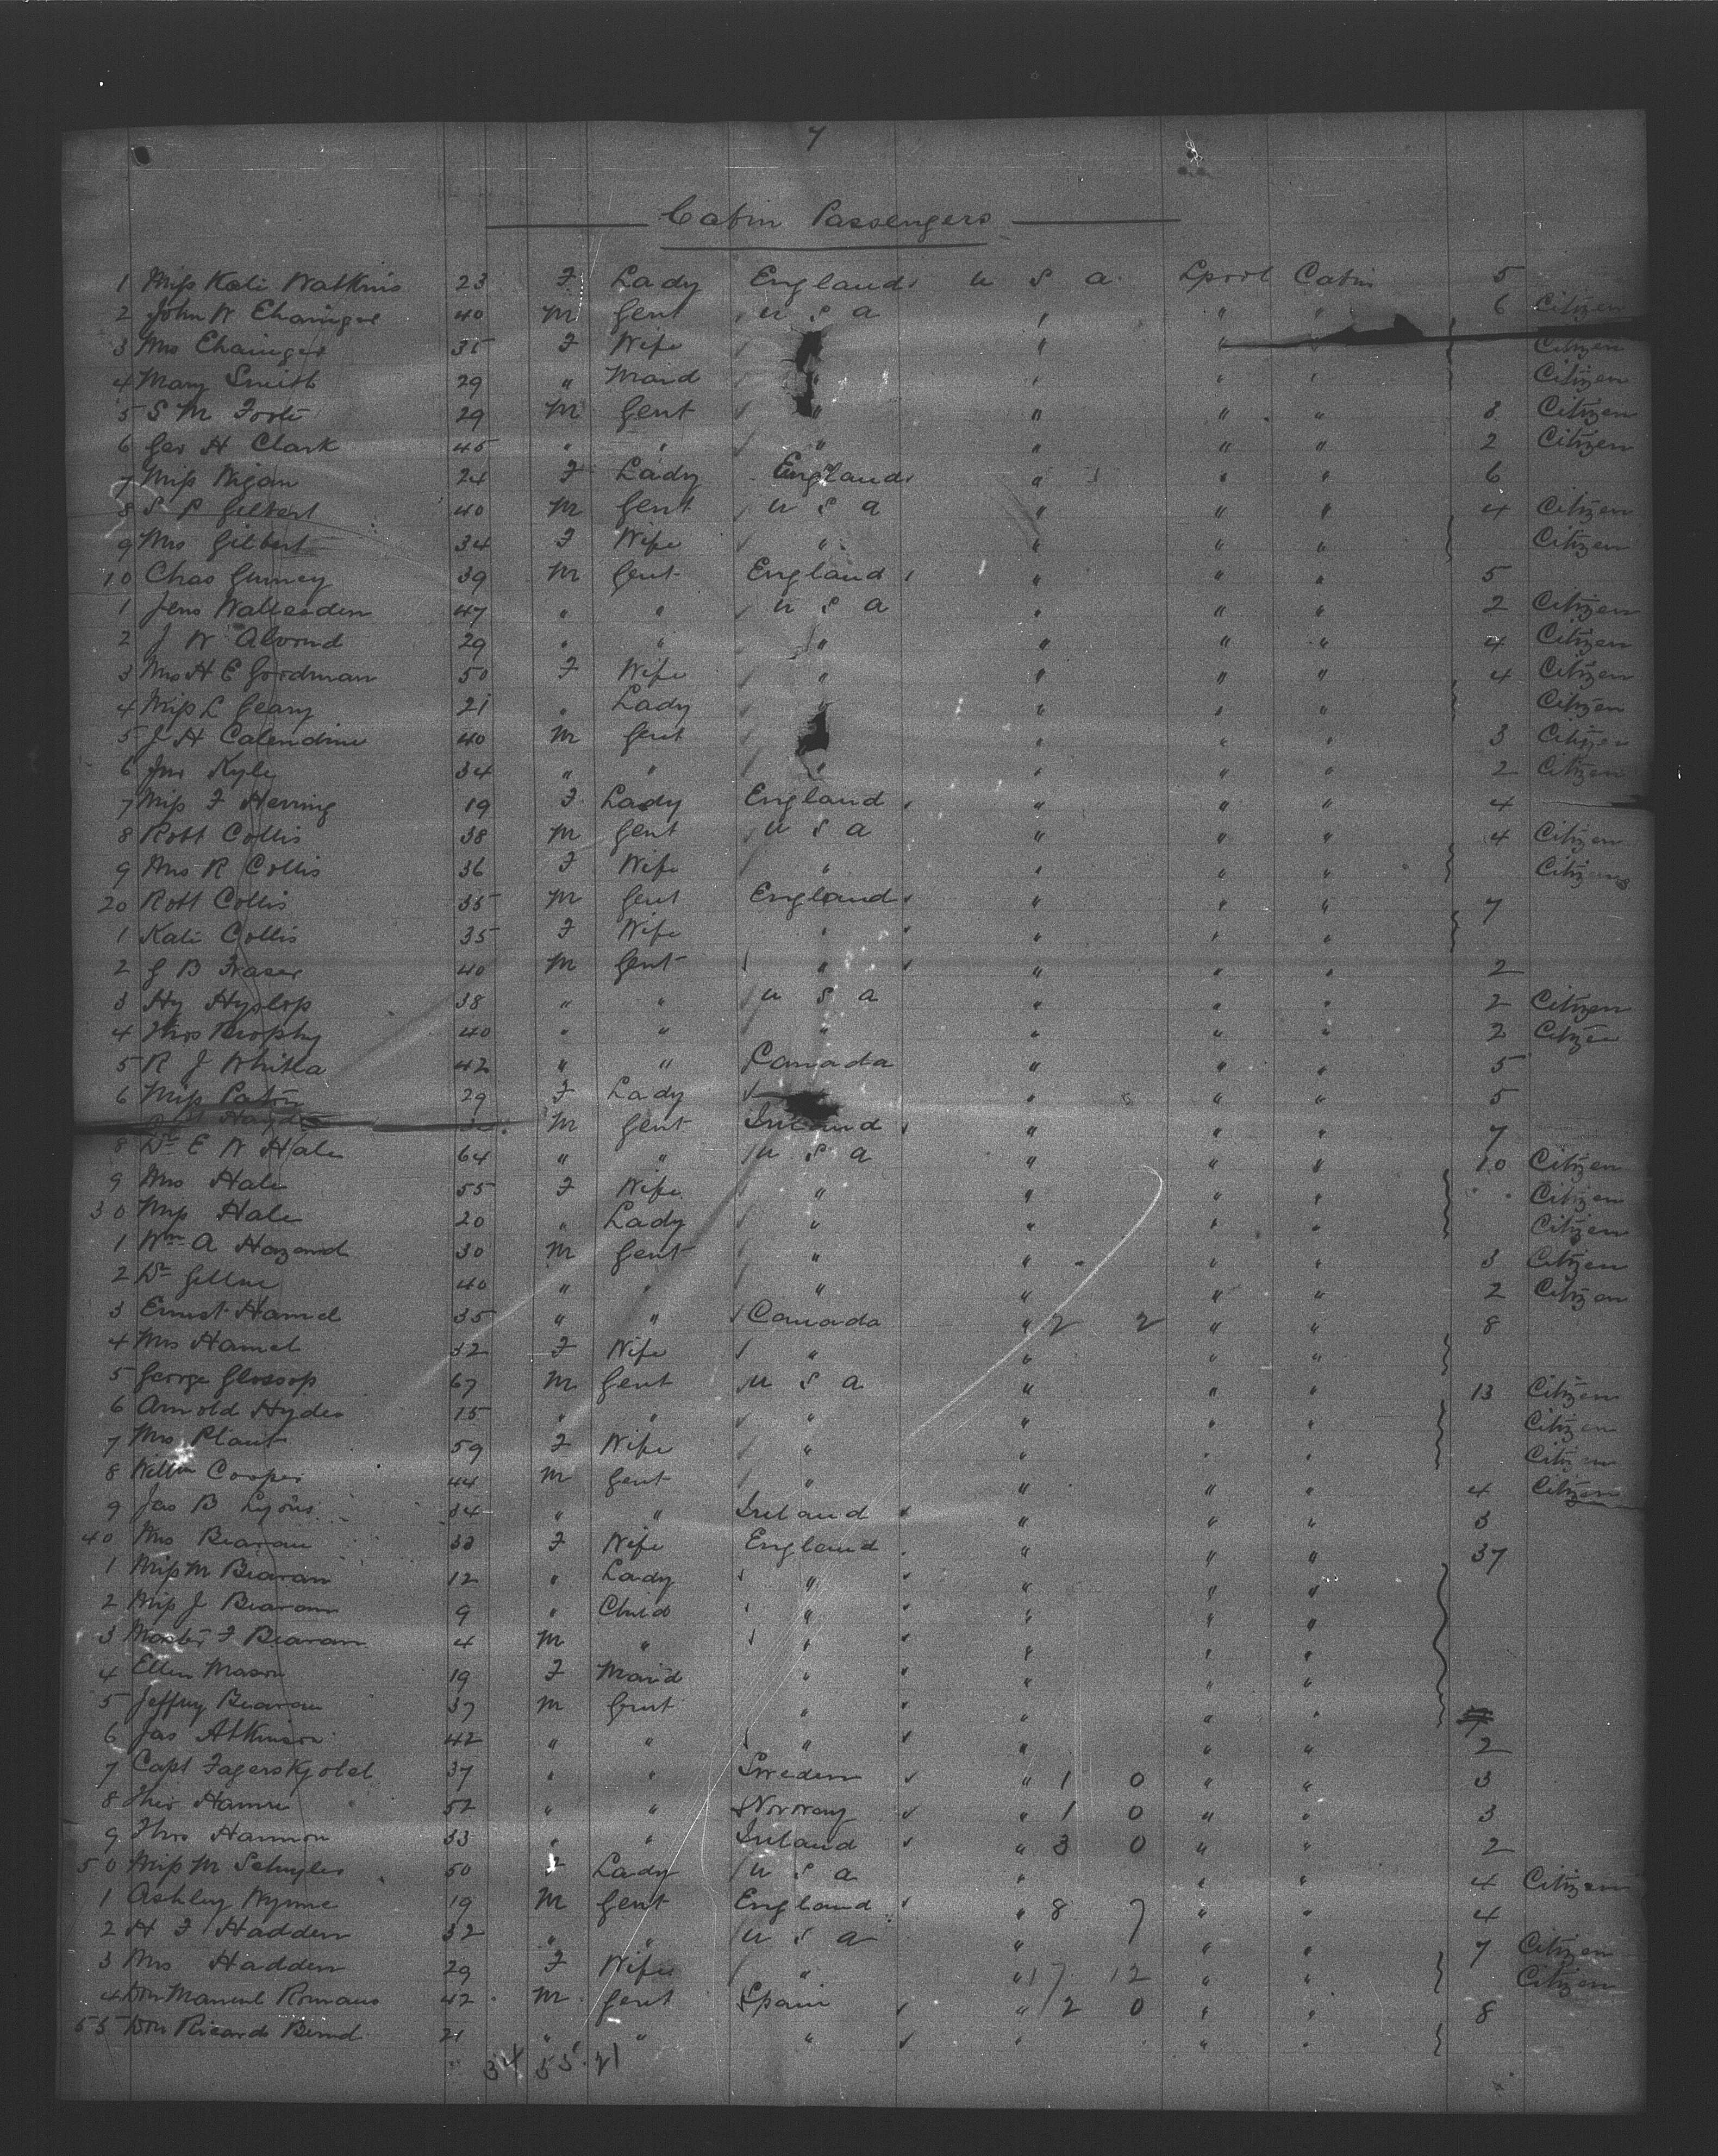 7
Cabin Passengers
1 Miss Kate Watkins 23 F Lady England U S A Lpool Cabin 5
2 John W 40 M Gent U S A " " " 6 Citizen
3 Mrs 35 F Wife " " " Citizen
4 Mary Smith 29 " Maid " " " " Citizen
5 S M Foote 29 M Gent " " " " 3 Citizen
6 Geo H Clark 45 " " " " " " 2 Citizen
7 Miss Wigan 24 F Lady England " " " 6
8 S P Gilbert 40 M Gent U S A " " " 4 Citizen
9 Mrs Gilbert 34 F Wife " " " " Citizen
10 Chas Gurney 39 M Gent England " " " 5
1 Jens 47 " " U S A " " " 2 Citizen
2 J W Alvord 29 " " " " " " 4 Citizen
3 Mrs H E Goodman 50 F Wife " " " " 4 Citizen
4 Miss L Geary 21 " Lady " " " " Citizen
5 J H 40 M Gent " " " 3 Citizen
6 Jno Kyle 34 " " " " " " 2 Citizen
7 Miss F Herring 19 F Lady England " " " 4
8 Robt Collis 38 M Gent U S A " " " 4 Citizen
9 Mrs R Collis 36 F Wife " " " " Citizen
20 Robt Collis 35 M Gent England " " " 7
1 Kate Collis 35 F Wife " " " "
2 G B Fraser 40 M Gent " " " " 2
3 Hy Hyslop 38 " " U S A " " " 2 Citizen
4 Thos Brophy 40 " " " " " " 2 Citizen
5 R J Whitla 42 " " Canada " " " 5
6 Miss Paton 29 F Lady " " " 5
M Gent Ireland " " " 7
8 Dr E W Hale 64 " " U S A " " " 10 Citizen
9 Mrs Hale 55 F Wife " " " " Citizen
30 Miss Hale 20 " Lady " " " " Citizen
1 Wm A Hazard 30 M Gent " " " " 3 Citizen
2 Dr 40 " " " " " " 2 Citizen
3 Ernest Hamel 35 " " Canada " 2 2 " " 8
4 Mrs Hamel 32 F Wife " " " "
5 George Glossop 67 M Gent U S A " " " 13 Citizen
6 Arnold Hydes 15 " " " " " " Citizen
7 Mrs Plant 59 F Wife " " " " Citizen
8 Cooper 44 M Gent " " " " 4 Citizen
9 Jas B Lyons 34 " " Ireland " " " 3
40 Mrs Bearan 33 F Wife England " " " 37
1 Miss M Bearan 12 " Lady " " " "
2 Miss J Bearan 9 " Child " " " "
3 Master F Bearan 4 M " " " " "
4 Ellen Mason 19 F Maid " " " "
5 Jeffrey Bearan 37 M Gent " " " "
6 Jas Atkinson 42 " " " " " " 2
7 Capt 37 " " Sweden " 1 0 " " 3
8 52 " " Norway " 1 0 " " 3
9 Thos Hannon 33 " " Ireland " 3 0 " " 2
50 Miss M Schuyler 50 F Lady U S A " " " 4 Citizen
1 Ashley Wynne 19 M Gent England " 8 7 " " 4
2 H F Hadden 32 " " U S A " " " 7 Citizen
3 Mrs Hadden 29 F Wife " " 17 12 " " Citizen
4 Don Manuel Romano 42 M Gent Spain " 2 0 " " 8
55 Don Ricardo 21 " " " " " "
34 55 21